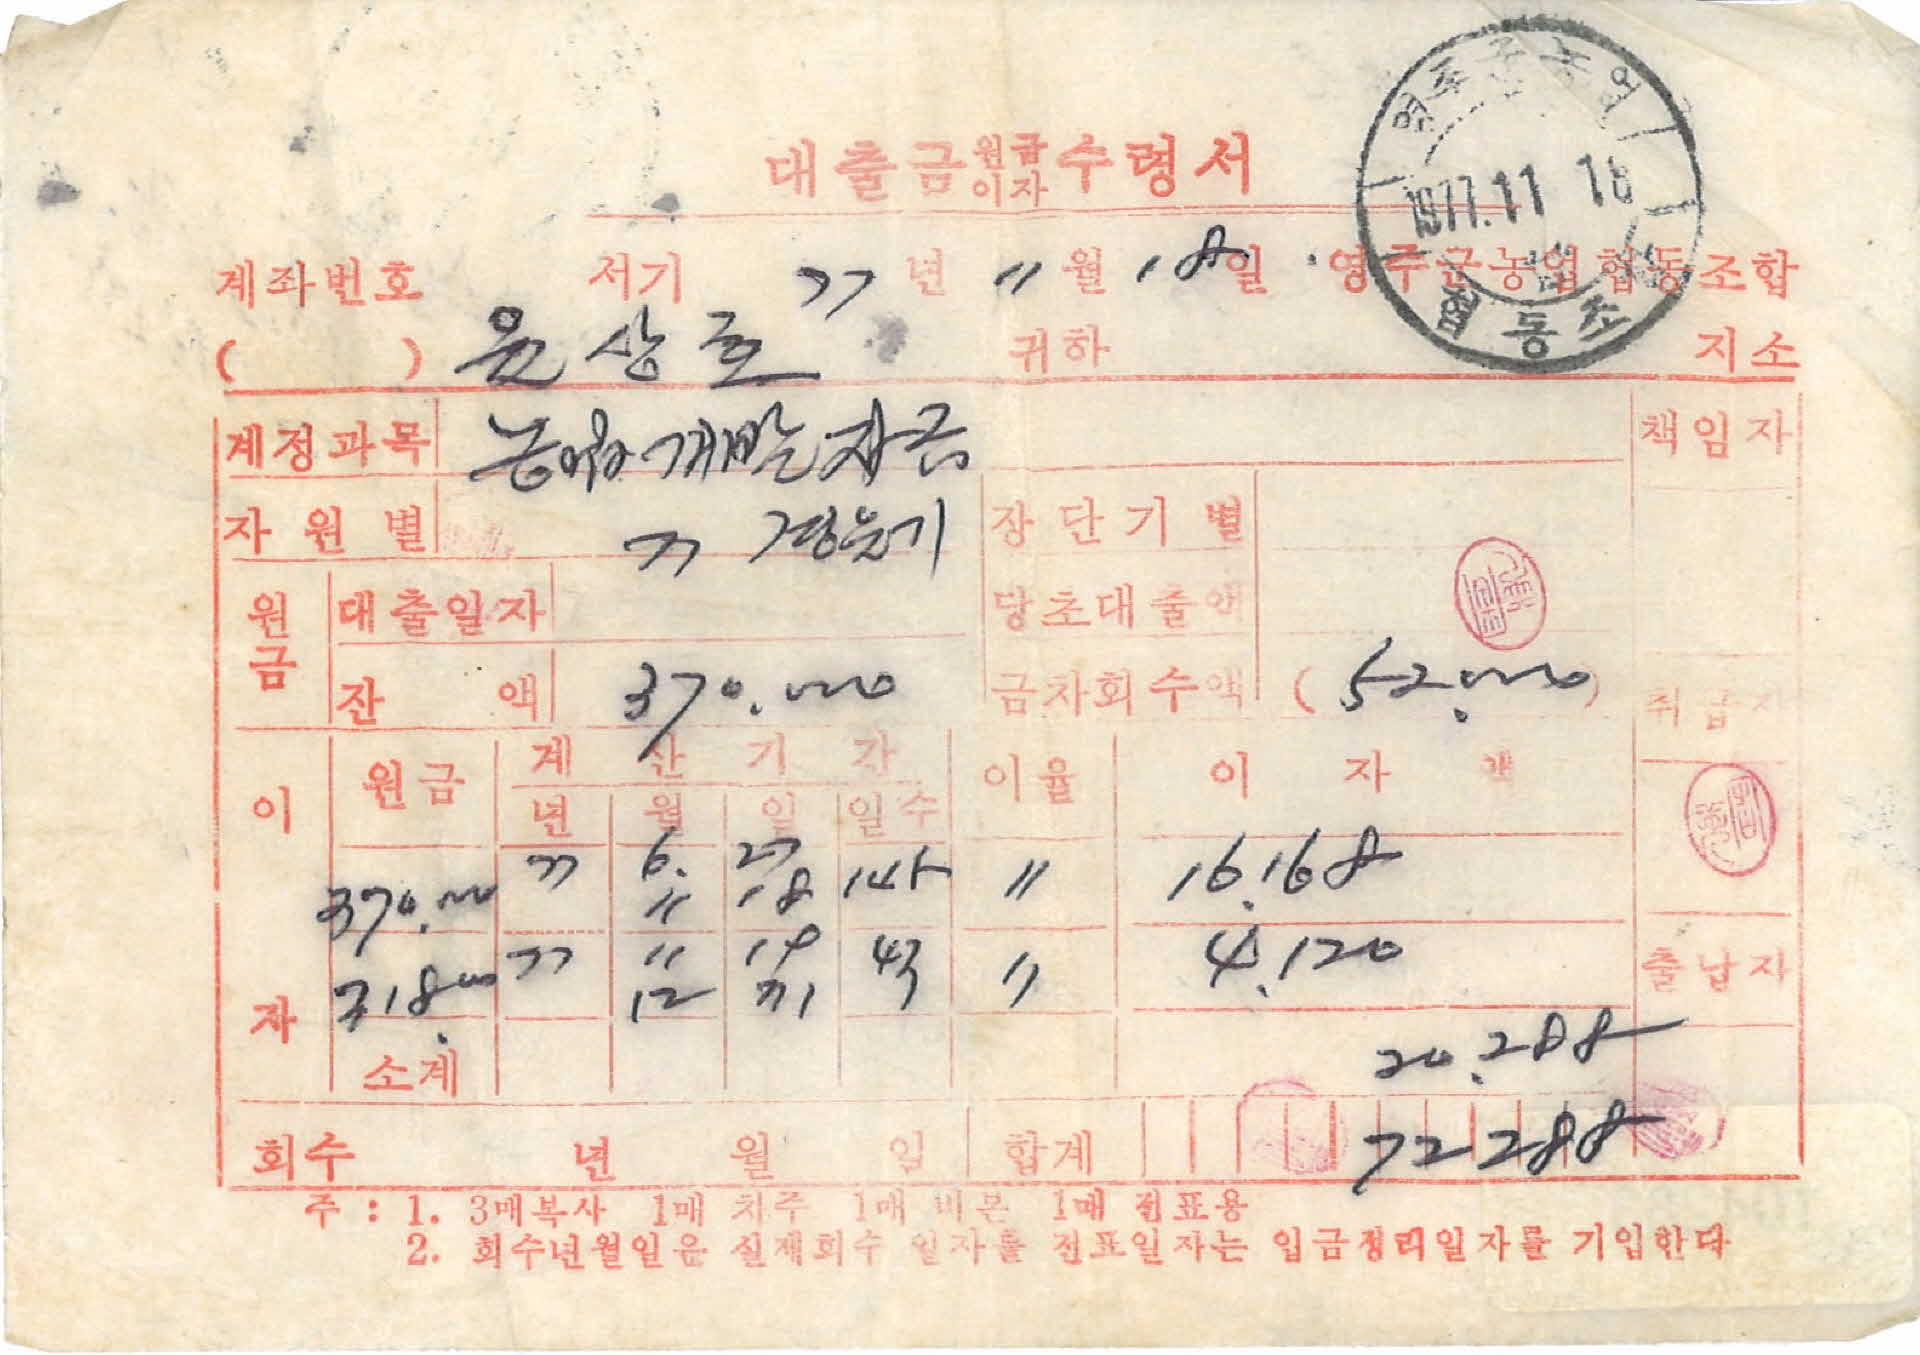 대출금 원금 이자 수령서
영주군농업협동조
1977.11 18
계좌번호 서기 77년 11월 18일 영주군농업협동조합
( ) 윤상호 귀하 지소
계정과목 농어촌개발자금 책임자
자원별 77 경운기 장단기별
원금 대출일자 당초대출액
잔액 370.000 금차회수액 (52.000) 취급자
이자 원금 계산기간 이율 이자액
년 월 일 일수
370.000 77 6. 27 145 〃 16.168
11 18
318.000 77 11 18 43 〃 4.120 출납자
12 31
소계 20.288
회수 년 월 일 합계 72288
주 : 1. 3매복사 1매 차주 1매 비본 1매 전표용
2. 회수년월일은 실제회수 일자를 전표일자는 입금정리일자를 기입한다